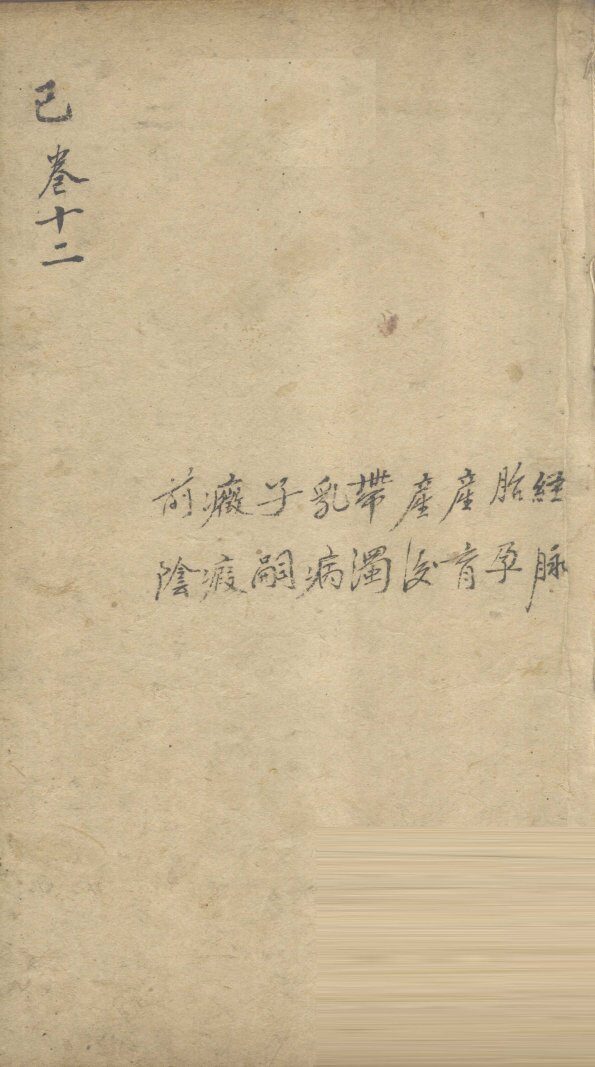 己卷十二
經脉
胎孕
產育
產後
帶濁
乳病
子嗣
癥瘕
前陰